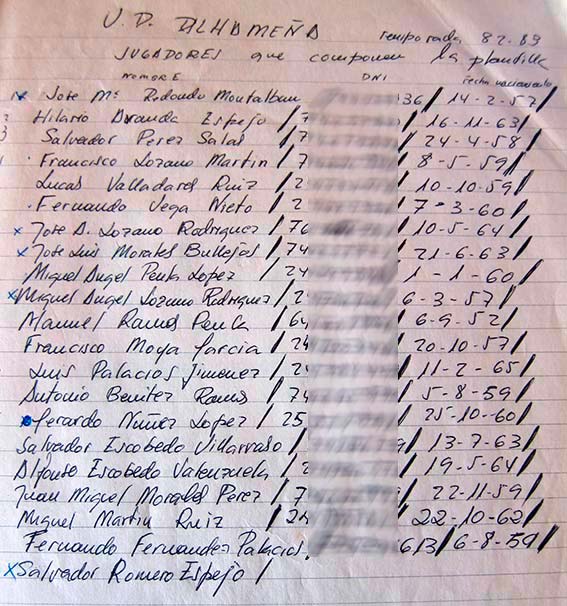 U.D. ALHAMEÑA Temporada 82-83
JUGADORES que componen la plantilla
NOMBRE DNI Fecha nacimiento
x Jose Mª Redondo Montalban 36/ 14-2-57/
Hilario Aranda Espejo /7 / 16-11-63/
Salvador Perez Salas /7 / 24-4-58/
Francisco Lozano Martin /7 / 8-5-59/
Lucas Valladares Ruiz /2 / 10-10-59/
Fernando Vega Nieto /2 / 7-3-60/
x Jose A. Lozano Rodriguez /76 / 10-5-64/
x Jose Luis Morales Bullejos /74 / 21-6-63/
Miguel Angel Peula Lopez /24 / 1-1-60/
x Miguel Angel Lozano Rodriguez /2 / 6-3-57/
Manuel Ramos Peula /64 / 6-9-52/
Francisco Moya Garcia /24 / 20-10-57/
Luis Palacios Jimenez /24 / 11-2-65/
Antonio Benitez Ramos /74 / 5-8-59/
Gerardo Nuñez Lopez /25 / 25-10-60/
Salvador Escobedo Villarraso / / 13-7-63/
Alfonso Escobedo Valenzuela /2 / 19-5-64/
Juan Miguel Morales Perez /7 / 22-11-59/
Miguel Martin Ruiz /24 / 22-10-62/
Fernando Fernandez Palacios, 613/ 6-8-59/
x Salvador Romero Espejo /